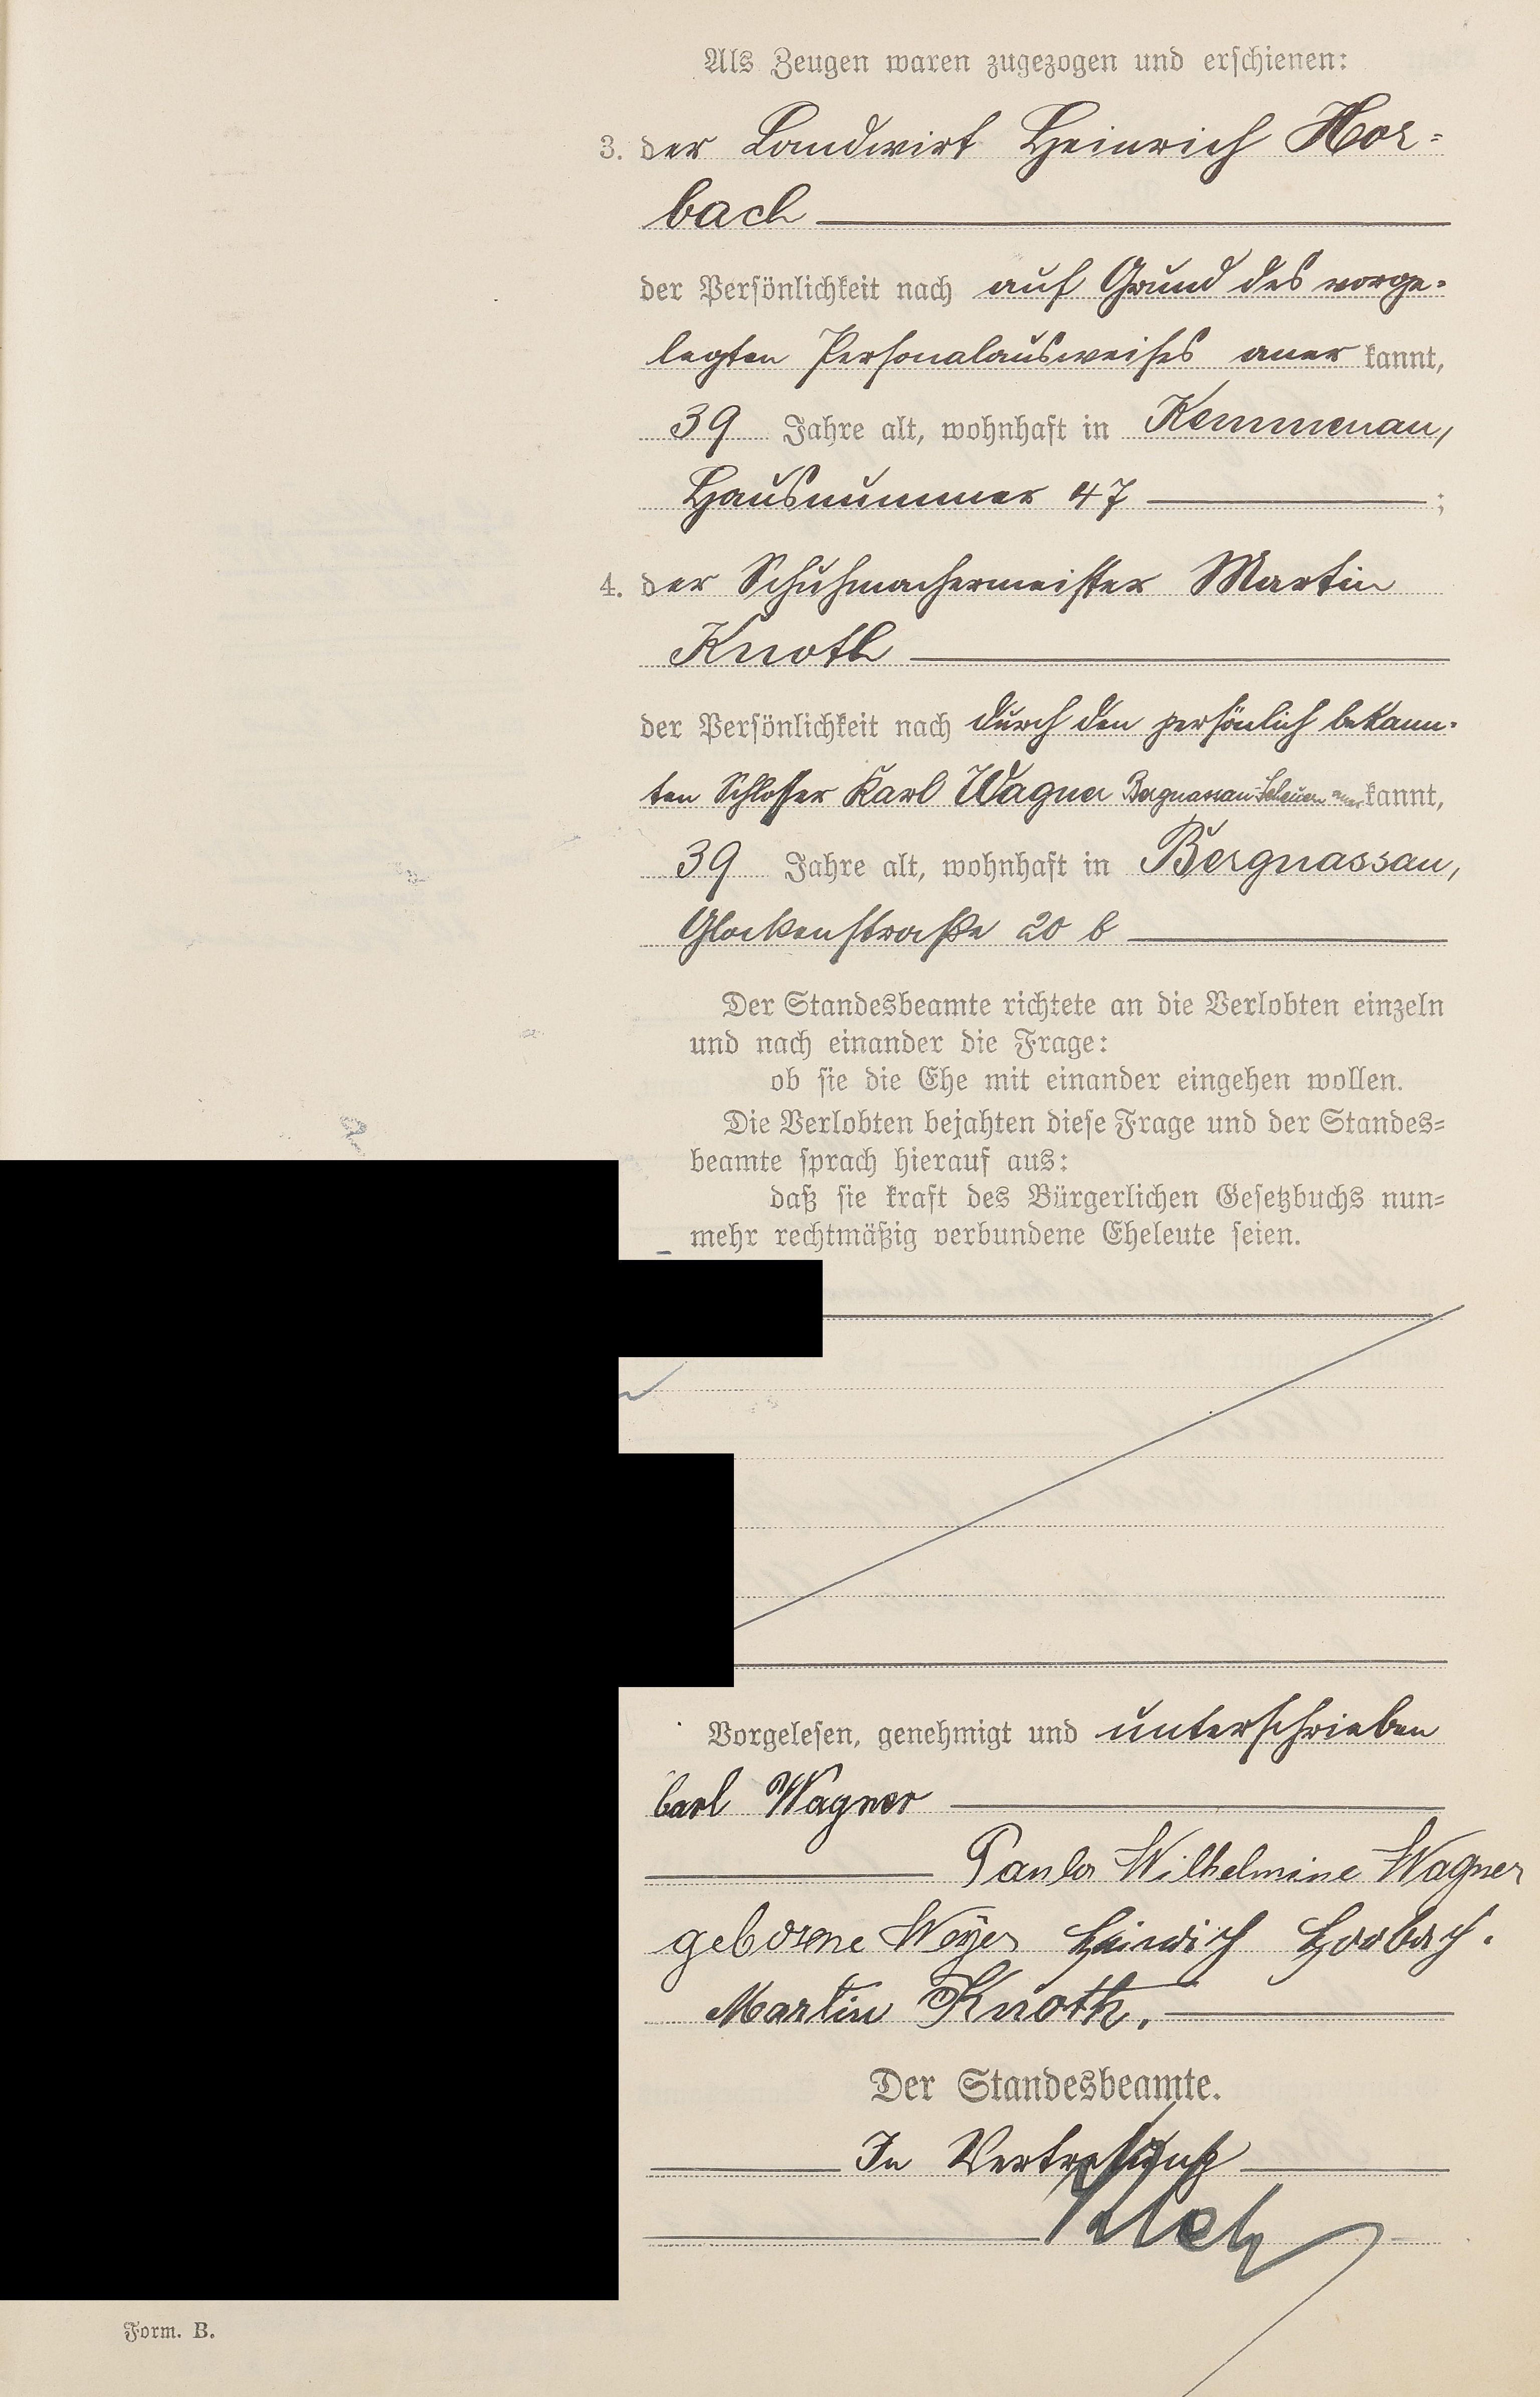 Als Zeugen waren zugezogen und erschienen:
3. der Landwirt Heinrich Hor-
bach
der Persönlichkeit nach auf Grund des vorge-
legten Personalausweises aner kannt,
39 Jahre alt, wohnhaft in Kemmenau,
Hausnummer 47 ;
4. der Schuhmachermeister Martin
Knoth
der Persönlichkeit nach durch den persönlich bekann-
ten Schlosser Karl Wagner Bergnassau-Scheuern aner kannt,
39 Jahre alt, wohnhaft in Bergnassau,
Glockenstraße 20 b
Der Standesbeamte richtete an die Verlobten einzeln
und nach einander die Frage:
ob sie die Ehe mit einander eingehen wollen.
Die Verlobten bejahten diese Frage und der Standes-
beamte sprach hierauf aus:
daß sie kraft des Bürgerlichen Gesetzbuchs nun-
mehr rechtmäßig verbundene Eheleute seien.
Vorgelesen, genehmigt und unterschrieben
Carl Wagner
Paula Wilhelmine Wagner
geborene Weyer Heinrich Horbach.
Martin Knoth.
Der Standesbeamte.
In Vertretung
Form. B.